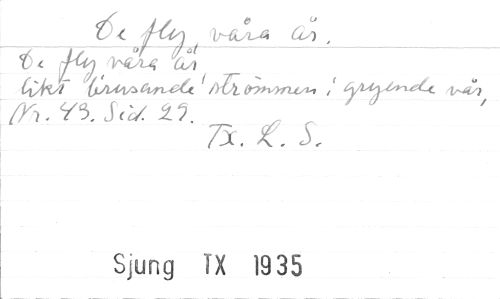 De fly våra år.
De fly våra år
likt brusande strömmen i gryende vår,
Nr. 43. Sid. 29.
Tx. L. S.
Sjung TX 1935